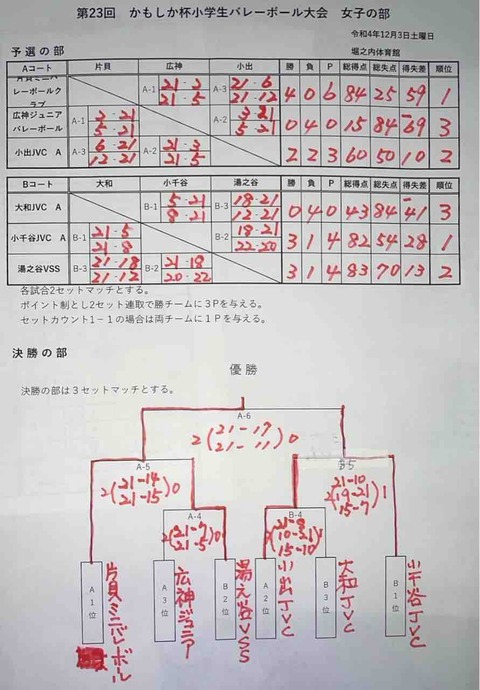 第23回　かもしか杯小学生バレーボール大会　女子の部
令和4年12月3日土曜日
堀之内体育館
予選の部
Aコート 片貝 広神 小出 勝 負 P 総得点 総失点 得失差 順位
片貝ミニバレーボールクラブ A-1 21-3 21-5 A-3 21-6 21-12 4 0 6 84 25 59 1
広神ジュニアバレーボール A-1 3-21 5-21 A-2 3-21 5-21 0 4 0 15 84 -69 3
小出JVC A A-3 6-21 12-21 A-2 21-3 21-5 2 2 3 60 50 10 2
Bコート 大和 小千谷 湯之谷 勝 負 P 総得点 総失点 得失差 順位
大和JVC A B-1 5-21 8-21 B-3 18-21 12-21 0 4 0 43 84 -41 3
小千谷JVC A B-1 21-5 21-8 B-2 18-21 22-20 3 1 4 82 54 28 1
湯之谷VSS B-3 21-18 21-12 B-2 21-18 20-22 3 1 4 83 70 13 2
各試合2セットマッチとする。
ポイント制とし2セット連取で勝チームに3Pを与える。
セットカウント1-1の場合は両チームに1Pを与える。
決勝の部
優勝
決勝の部は3セットマッチとする。
A-6
2(21-17 21-11)0
A-5
2(21-14 21-15)0
B-5
2(21-10 19-21 15-7)1
A-4
2(21-7 21-5)0
B-4
10-21
15-10
A1位 片貝ミニバレーボール
A3位 広神ジュニア
B2位 湯之谷VSS
A2位 小出JVC
B3位 大和JVC
B1位 小千谷JVC